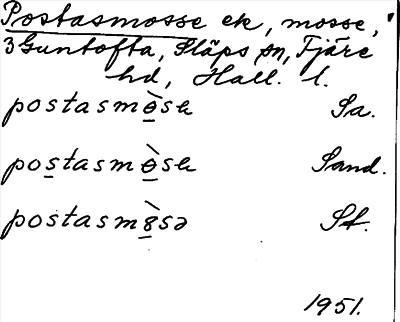 Postasmosse ek, mosse,
3 Guntofta, Släps sn, Fjäre
hd, Hall. l.
postasmòsa Sa.
postasmòsa Sand.
postasm sə St.
1951.